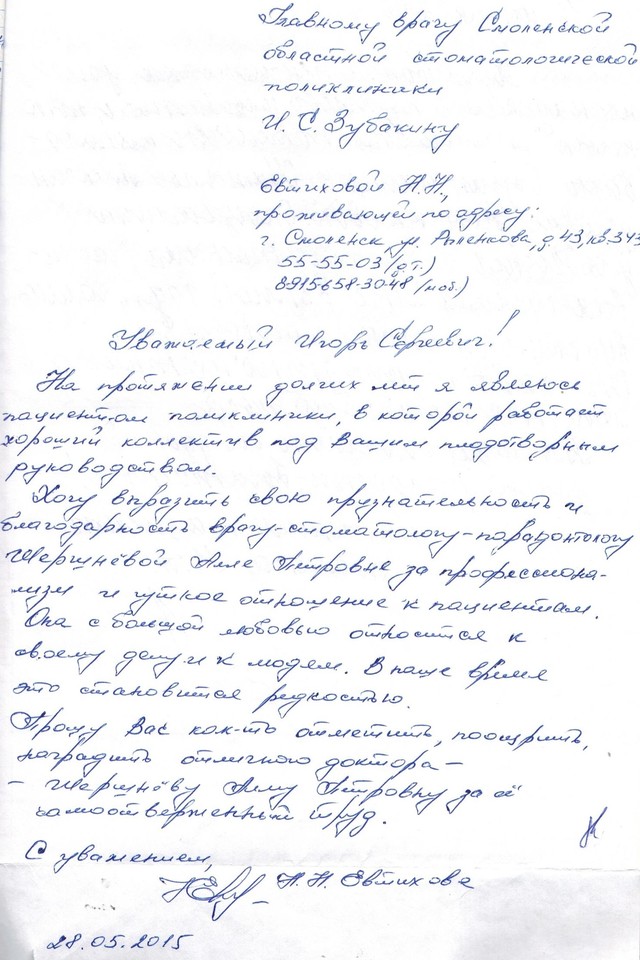 Главному врачу Смоленской
областной стоматологической
поликлиники
И. С. Зубакину
Евтиховой Н.Н.,
проживающей по адресу:
г. Смоленск, ул. д. 43, кв. 343
55-55-03 (д.т.)
8915-658-3048 (моб.)
Уважаемый Игорь Сергеевич!
На протяжении долгих лет я являюсь
пациентом поликлиники, в которой работает
хороший коллектив под Вашим плодотворным
руководством.
Хочу выразить свою признательность и
благодарность врачу-стоматологу-пародонтологу
Шершнёвой Алле Петровне за профессиона-
лизм и чуткое отношение к пациентам.
Она с большой любовью относится к
своему делу и к людям. В наше время
это становится редкостью.
Прошу Вас как-то отметить, поощрить,
наградить отличного доктора –
– Шершнёву Аллу Петровну за её
самоотверженный труд.
С уважением,
Н.Н. Евтихова
28.05.2015